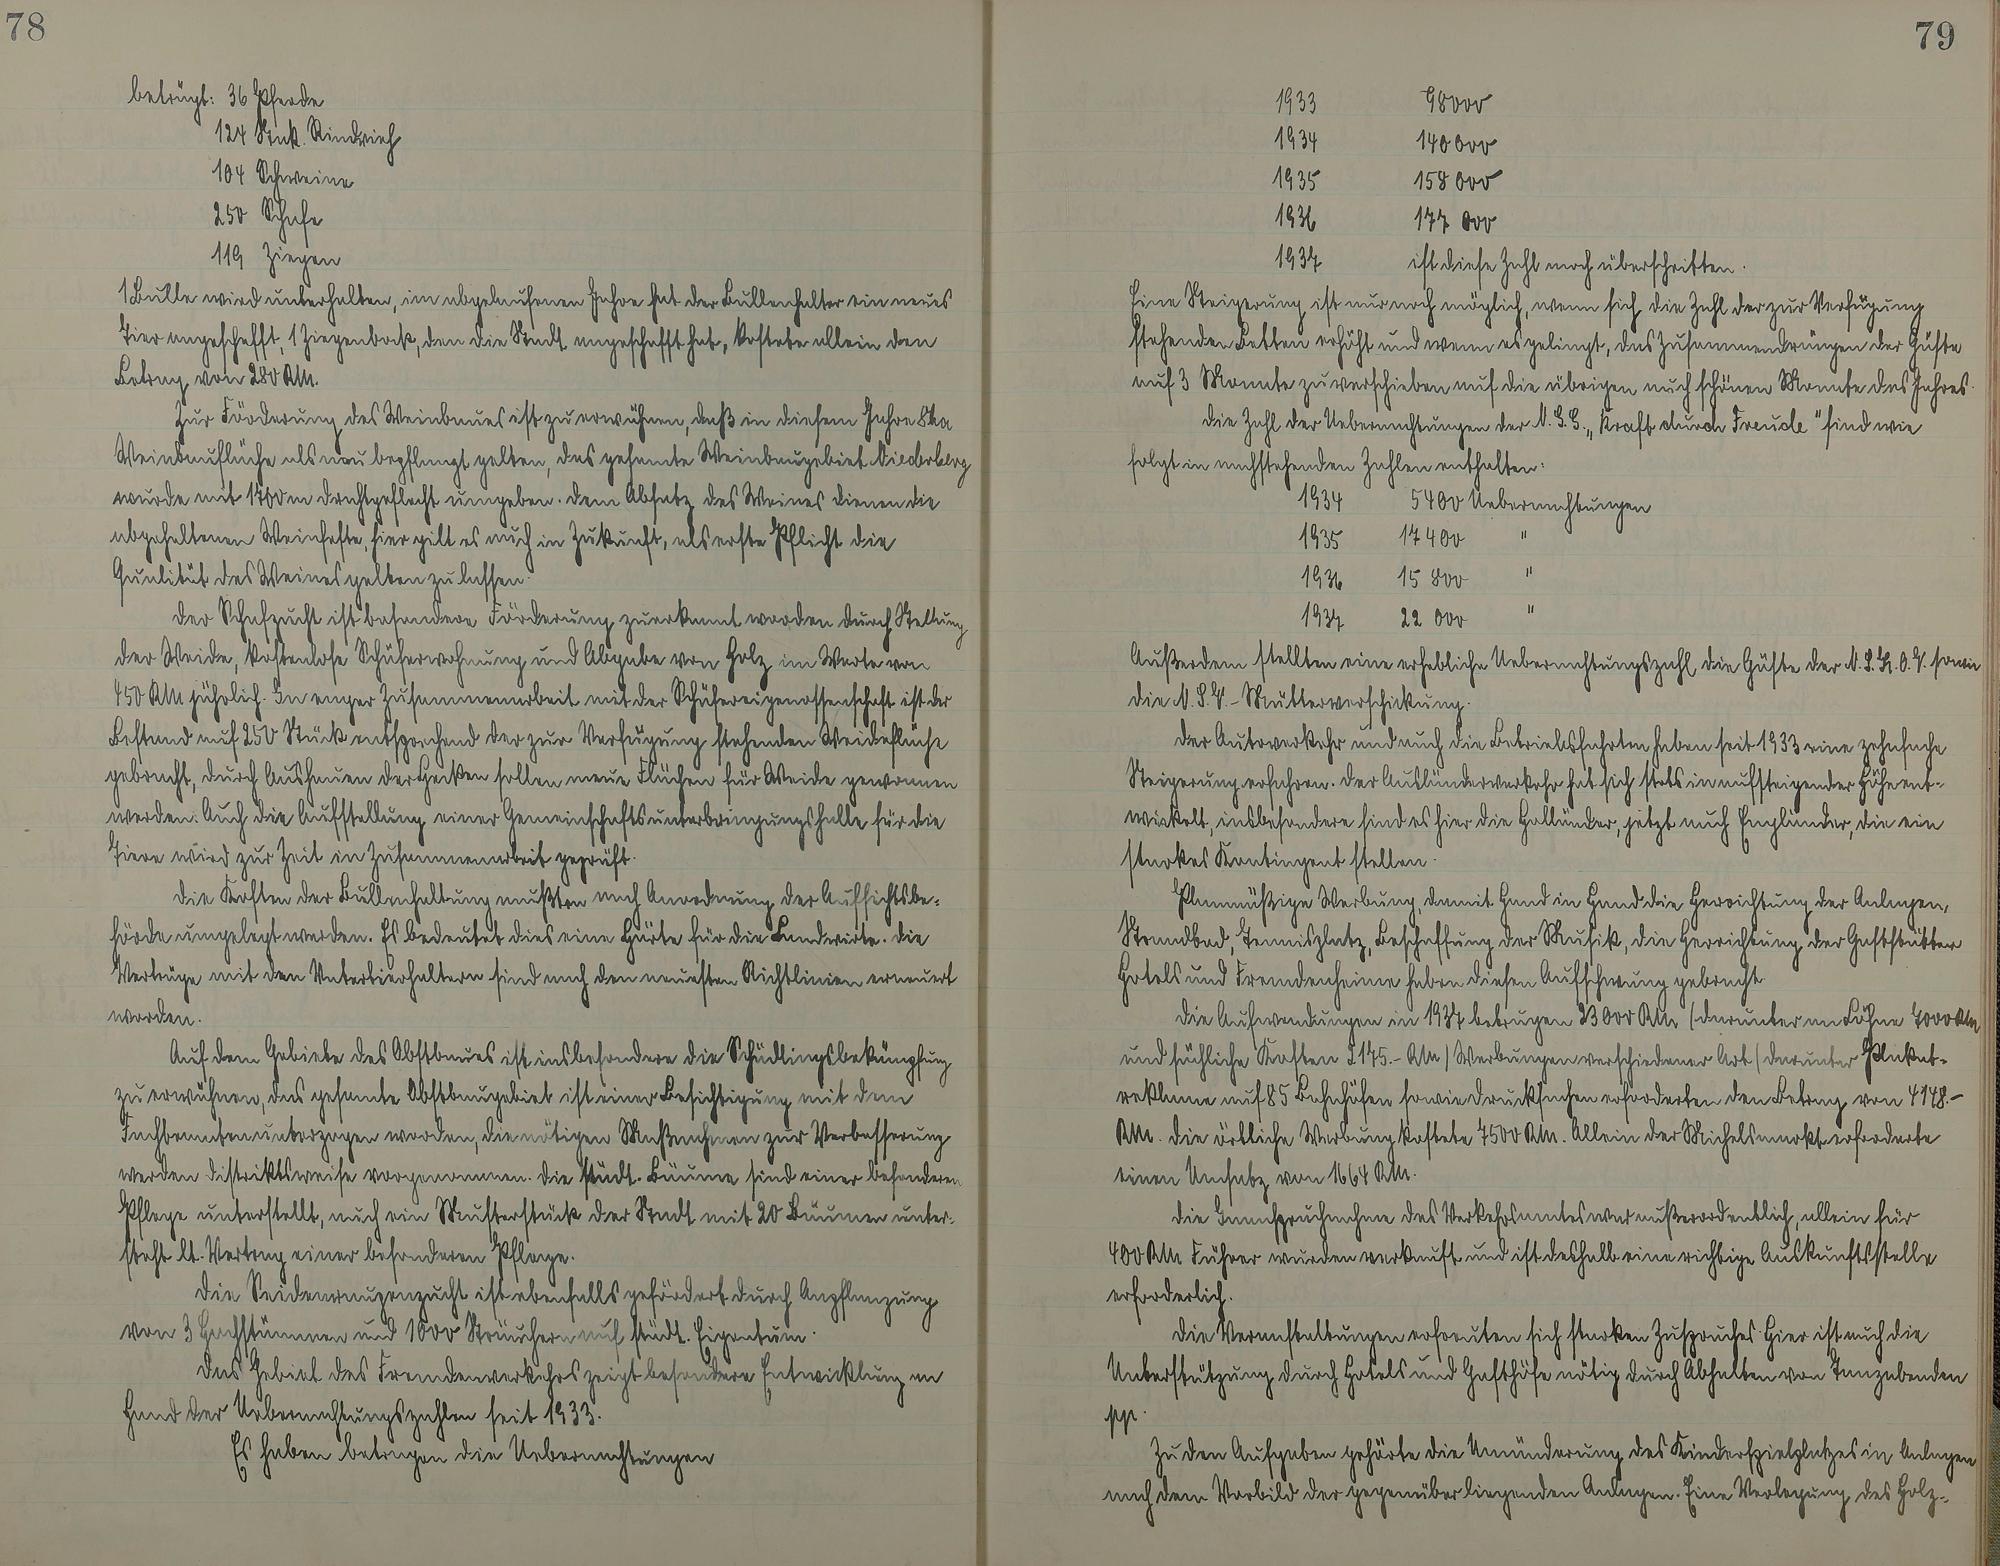 78
beträgt: 36 Pferde
124 Stck. Rindvieh
104 Schweine
250 Schafe
119 Ziegen
1 Bulle wird unterhalten, im abgelaufenen Jahre hat der Bullenhalter ein neues
Tier angeschafft, 1 Ziegenbock, den die Stadt angeschafft hat, kostete allein den
Betrag von 280 RM.
Zur Förderung des Weinbaues ist zu erwähnen, daß in diesem Jahre 8 ha
Weinbaufläche als neu bepflanzt gelten, das gesamte Weinbaugebiet Niederberg
wurde mit 1700 m Drahtgeflecht umgeben. Dem Absatz des Weines dienen die
abgehaltenen Weinfeste, hier gilt es auch in Zukunft, als erste Pflicht die
Qualität des Weines gelten zu lassen.
Der Schafzucht ist besondere Förderung zuerkannt worden durch Stellung
der Weide, kostenlose Schäferwohnung und Abgabe von Holz im Werte von
450 RM jährlich. In enger Zusammenarbeit mit der Schäfereigenossenschaft ist der
Bestand auf 250 Stück entsprechend der zur Verfügung stehenden Weidefläche
gebracht, durch Aushauen der Hecken sollen neue Flächen für Weide gewonnen
werden. Auch die Aufstellung einer Gemeinschaftsunterbringungshalle für die
Tiere wird zur Zeit in Zusammenarbeit geprüft.
Die Kosten der Bullenhaltung mußten nach Anordnung der Aufsichtsbe-
hörde umgelegt werden. Es bedeutet dies eine Härte für die Landwirte. Die
Verträge mit den Vatertierhaltern sind nach den neuesten Richtlinien erneuert
worden.
Auf dem Gebiete des Obstbaues ist insbesondere die Schädlingsbekämpfung
zu erwähnen, das gesamte Obstbaugebiet ist einer Besichtigung mit dem
Fachbeamten unterzogen worden, die nötigen Maßnahmen zur Verbesserung
werden distriktsweise vorgenommen. Die städt. Bäume sind einer besonderen
Pflege unterstellt, auch ein Musterstück der Stadt mit 20 Bäumen unter-
steht lt. Vertrag einer besonderen Pflege.
Die Seidenraupenzucht ist ebenfalls gefördert durch Anpflanzung
von 3 Hochstämmen und 1000 Sträuchern auf städt. Eigentum.
Das Gebiet des Fremdenverkehrs zeigt besondere Entwicklung an
Hand der Uebernachtungszahlen seit 1933.
Es haben betragen die Uebernachtungen
79
1933 98000
1934 140 000
1935 158 000
1936 177 000
1937 ist diese Zahl noch überschritten.
Eine Steigerung ist nur noch möglich, wenn sich die Zahl der zur Verfügung
stehenden Betten erhöht und wenn es gelingt, das Zusammendrängen der Gäste
auf 3 Monate zu verschieben auf die übrigen auch schönen Monate des Jahres.
Die Zahl der Uebernachtungen der N.S.G. „Kraft durch Freude" sind wie
folgt in nachstehenden Zahlen enthalten:
1934 5400 Uebernachtungen
1935 17400 "
1936 15 800 "
1937 22 000 "
Außerdem stellten eine erhebliche Uebernachtungszahl die Gäste der N.S.K.O.V. sowie
die N.S.V.-Mütterverschickung.
Der Autoverkehr und auch die Betriebsfahrten haben seit 1933 eine zehnfache
Steigerung erfahren. Der Ausländerverkehr hat sich stets in aufsteigender Höhe ent-
wickelt, insbesondere sind es hier die Holländer, jetzt auch Engländer, die ein
starkes Kontingent stellen.
Planmäßige Werbung, damit Hand in Hand die Herrichtung der Anlagen,
Strandbad, Tennisplatz, Beschaffung der Musik, die Herrichtung der Gaststätten
Hotels und Fremdenheime haben diesen Aufschwung gebracht.
Die Aufwendungen in 1937 betrugen 23000 RM (darunter an Löhne 7000 RM
und sächliche Kosten 2175.- RM) Werbungen verschiedener Art (darunter Plakat-
reklame auf 85 Bahnhöfen sowie Drucksachen erforderten den Betrag von 4148.-
RM. Die örtliche Werbung kostete 7500 RM. Allein der Michelsmarkt erforderte
einen Umsatz von 1664 RM.
Die Inanspruchnahme des Verkehrsamtes war außerordentlich, allein für
400 RM Führer wurden verkauft und ist deshalb eine richtige Auskunftsstelle
erforderlich.
Die Veranstaltungen erfreuten sich starken Zuspruches. Hier ist auch die
Unterstützung durch Hotels und Gasthöfe nötig durch Abhalten von Tanzabenden
pp.
Zu den Aufgaben gehörte die Umänderung des Kinderspielplatzes in Anlagen
nach dem Vorbild der gegenüber liegenden Anlagen. Eine Verlegung des Holz-